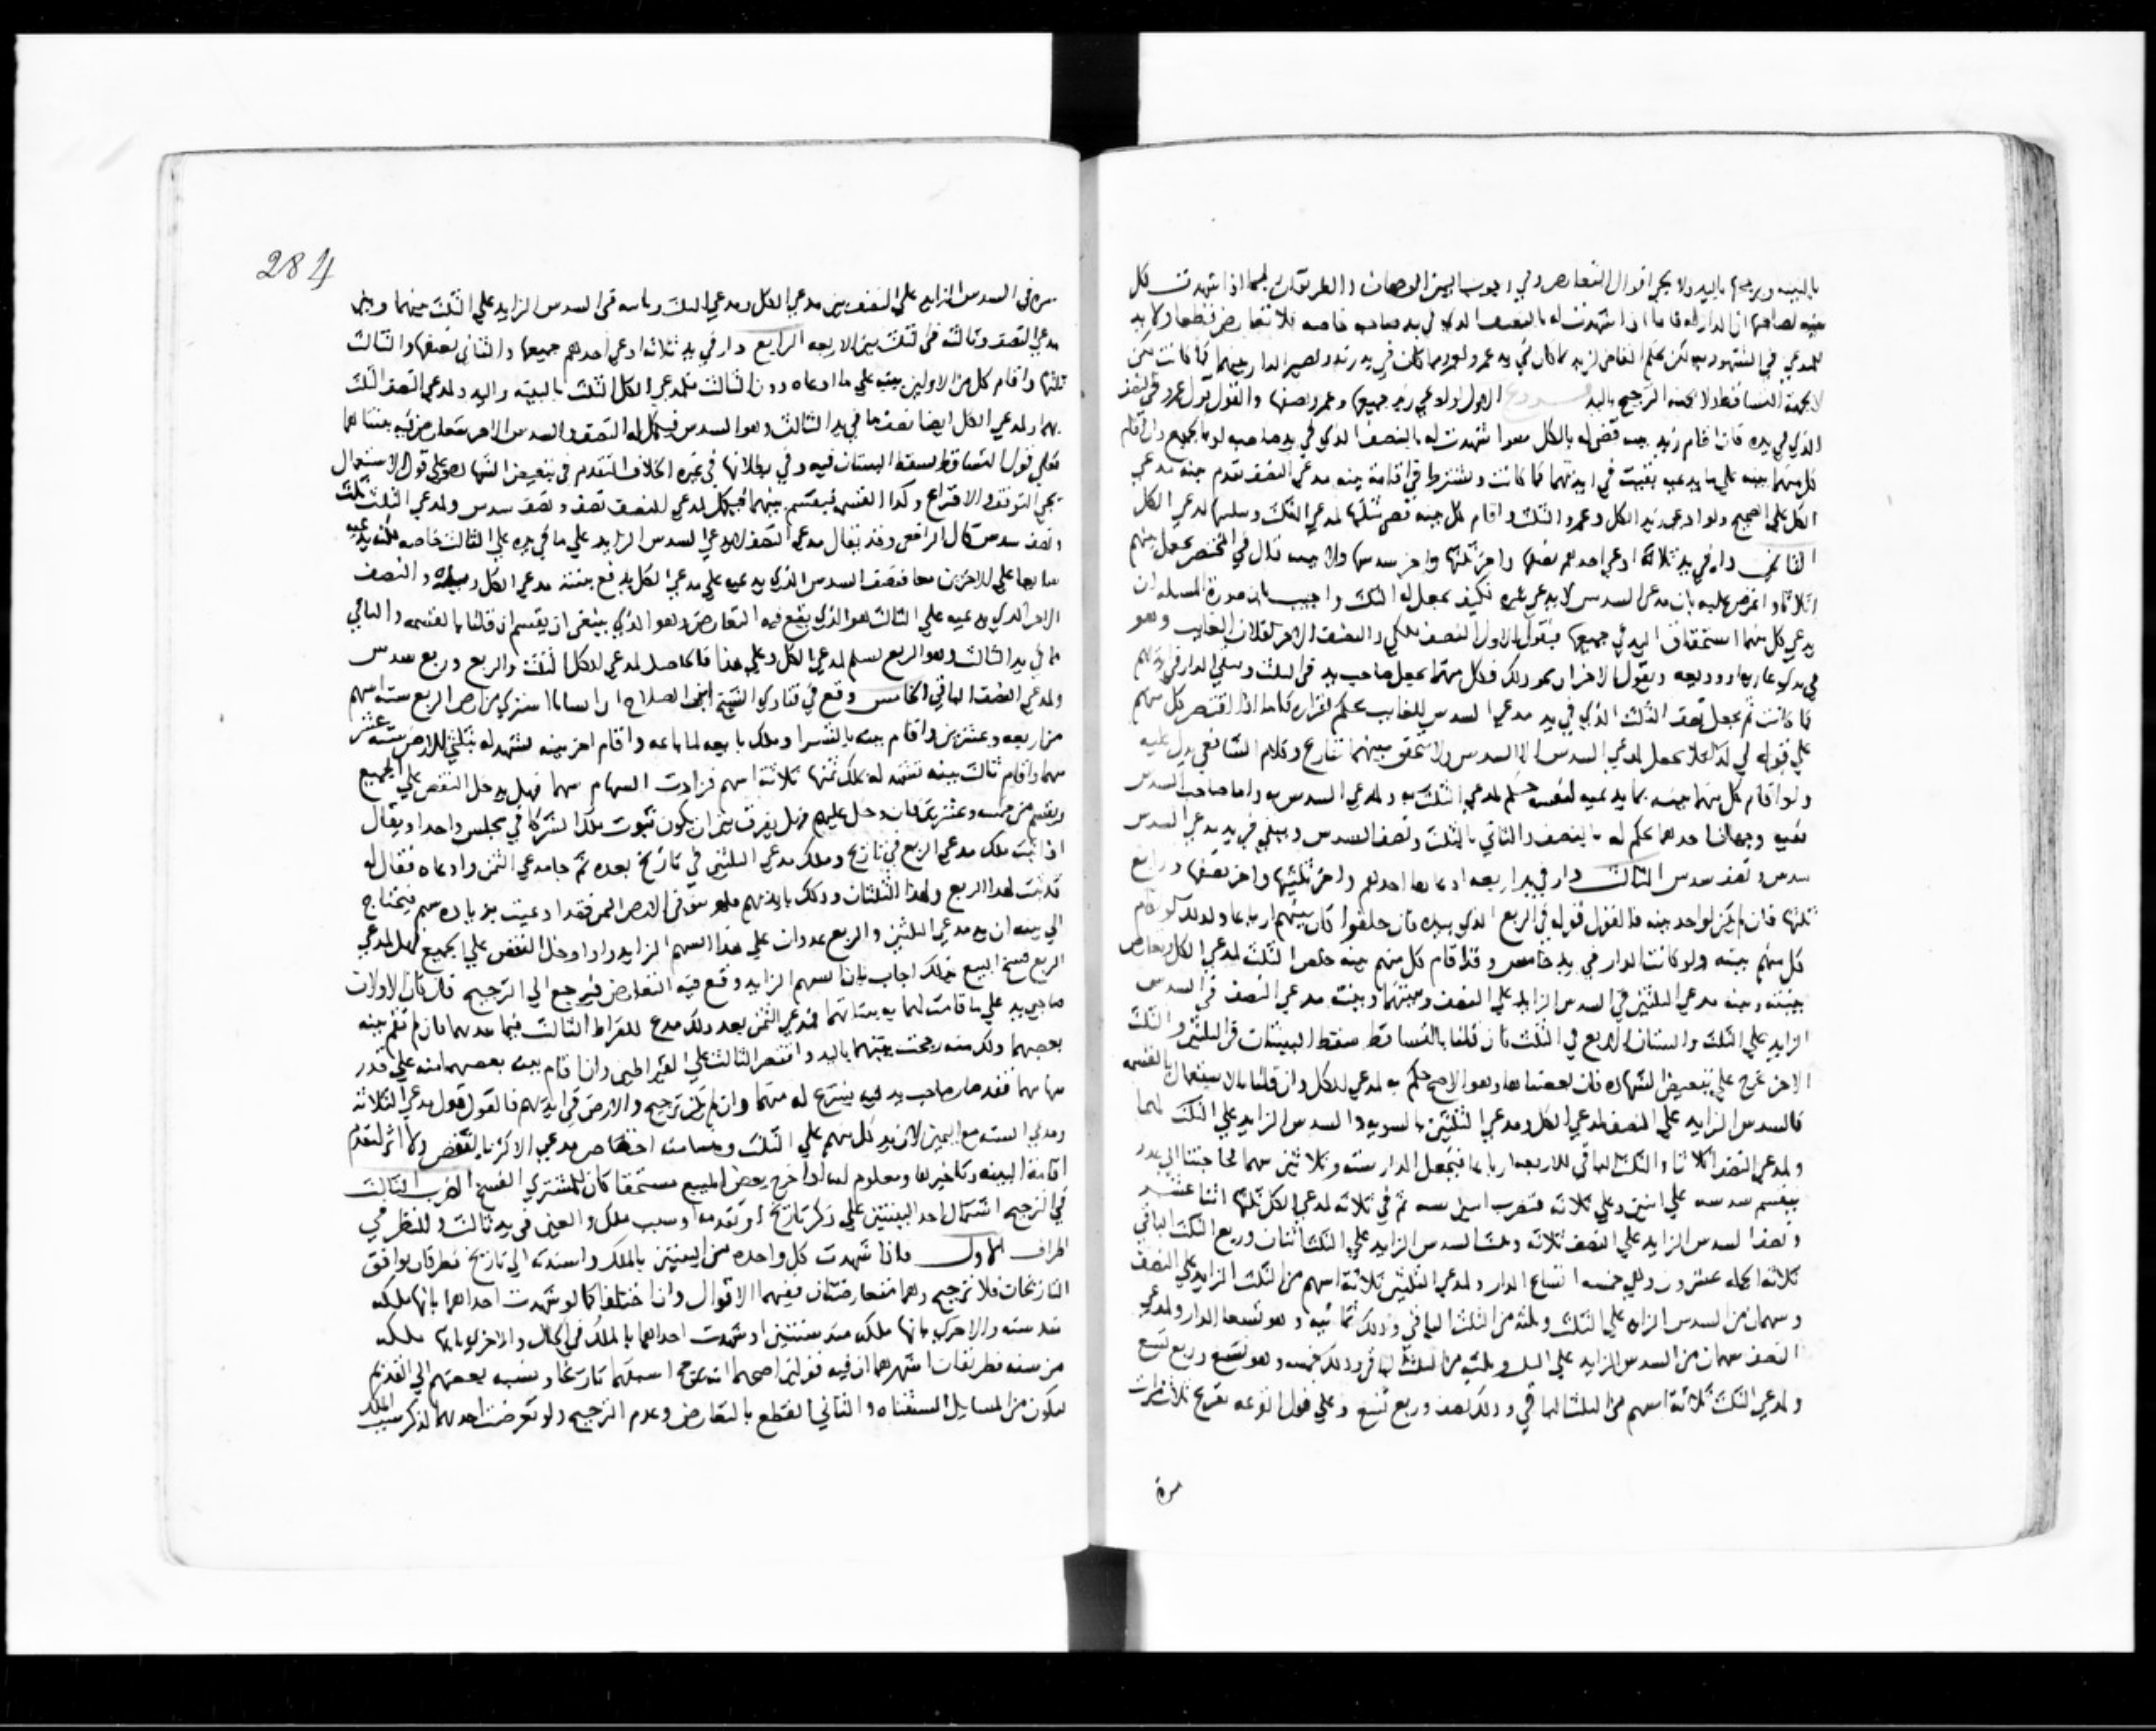 بالبينه ويرجح باليد ولا يجي اقوال التعارض وفي وجوب اليمين الوجهان والطريقان فيما اذا شهدت كل
بينه لصاحبها ان الدار له فاما اذا شهدت له بالنصف الذي في يد صاحبه خاصه فلا تعارض قطعا ولا يد
للمدعي في المشهود به لكن يحكم القاضي لزيد بما كان في يد عمرو ولعمرو بما كان في يد زيد وتصير الدار بينهما كما كانت لكن
لا بجهة التساقط ولا بجهة الترجيح باليد فروع الاول لو ادعي زيد جميعها وعمرو نصفها والقول قول عمرو في النصف
الذي في يده فان اقام زيد بينه قضي له بالكل سوا شهدت له بالنصف الذي في يد صاحبه او بالجميع وان اقام
كل منهما بينه علي ما يدعيه بقيت في ايديهما كما كانت ويشترط في اقامة بينه مدعي النصف تقدم بينه مدعي
الكل علي الصحيح ولو ادعي زيد الكل وعمرو الثلث واقام كل بينه قضي بثلثها لمدعي الثلث وسلبها لمدعي الكل
الثاني دار في يد ثلاثة ادعي احدهم نصفها واخر ثلثها واخر سدسها ولا بينه قال في المختصر يجعل بينهم
اثلاثا واعترض عليه بان مدعي السدس لا يدعي غيره فكيف يجعل له الثلث واجيب بان صورة المسله ان
يدعي كل منهما استحقاق اليد في جميعها فيقول الاول النصف ملكي والنصف الاخر لفلان الغايب وهو
في يدي عاريه او وديعه ويقول الاخران نحو ذلك فكل منهما يجعل صاحب يد في الثلث وتبقي الدار في ايديهم
كما كانت ثم يجعل نصف الثلث الذي في يد مدعي السدس للغايب بحكم اقراره فاما اذا اقتصر كل منهم
علي قوله لي كذا فلا يجعل لمدعي السدس الا السدس ولا يتحقق بينهما تنازع وكلام الشافعي يدل عليه
ولو اقام كل منهما بينه بما يدعيه لنفسه حكم لمدعي الثلث به ولمدعي السدس به واما صاحب السدس
ففيه وجهان احدهما يحكم له بالنصف والثاني بالثلث ونصف السدس ويبقي في يد مدعي السدس
سدس ونصف سدس الثالث دار في يد اربعه ادعاها احدهم واخر ثلثيها واخر نصفها ورابع
ثلثها فان لم يكن لواحد بينه فالقول قوله في الربع الذي بيده فان حلفوا كان بينهم ارباعا وكذلك لو اقام
كل منهم بينه ولو كانت الدار في يد خامس وقد اقام كل منهم بينه خلص الثلث لمدعي الكل وتعارض
بينته وبينه مدعي الثلثين في السدس الزايد علي النصف وبينتهما وبينه مدعي النصف في السدس
الزايد علي الثلث والبينات الاربع في الثلث فان قلنا بالتساقط سقط البينات في الثلثين والثلث
الاخر يخرج علي تبعيض الشهاده فان بعضناها وهو الاصح حكم به لمدعي الكل وان قلنا بالاستعمال بالقسمه
فالسدس الزايد علي النصف لمدعي الكل ومدعي الثلثين بالسويه والسدس الزايد علي الثلث لهما
ولمدعي النصف اثلاثا والثلث الباقي للاربعه ارباعا فتجعل الدار سته وثلاثين سهما لحاجتنا الي عدد
ينقسم سدسه علي اثنين وعلي ثلاثه فتضرب اثنين ثم في ثلاثه لمدعي الكل ثلثها اثنا عشر
ونصف السدس الزايد علي النصف ثلاثه وثلث السدس الزايد علي الثلث اثنان وربع الثلث الباقي
ثلاثه الجمله عشرون وهي خمسه اتساع الدار ولمدعي الثلثين ثلاثة اسهم من الثلث الزايد علي النصف
وسهمان من السدس الزايد علي الثلث وثلثه من الثلث الباقي وذلك ثمانيه وهو تسعا الدار ولمدعي
النصف سهمان من السدس الزايد علي الثلث وثلثه من الثلث الباقي وذلك خمسه وهو تسع وربع تسع
ولمدعي الثلث ثلاثة اسهم من الثلث الباقي وذلك نصف وربع تسع وعلي قول القرعه يقرع ثلاث مرات
مرة
284
مره في السدس الزايد علي النصف بين مدعي الكل ومدعي الثلث وثانيه في السدس الزايد علي الثلث بينهما وبين
مدعي النصف وثالثه في الثلث بين الاربعه الرابع دار في يد ثلاثه ادعي احدهم جميعها والثاني نصفها والثالث
ثلثها واقام كل من الاولين بينه علي ما ادعاه دون الثالث فلمدعي الكل الثلث بالبينه واليد ولمدعي النصف الثلث
بهما ولمدعي الكل ايضا نصف ما في يد الثالث وهو السدس فيكمل له النصف والسدس الاخر تتعارض فيه بينتاهما
فعلي قول التساقط تسقط البينتان فيه وفي بطلانها في غيره الخلاف المتقدم في تبعيض الشهاده وعلي قول الاستعمال
يجي التوقف والاقراع وكذا القسمه فيقسم بينهما فيكمل لمدعي النصف نصف ونصف سدس ولمدعي الثلث ثلث
ونصف سدس قال الرافعي وقد يقال مدعي النصف لا يدعي السدس الزايد علي ما في يده علي الثالث خاصه لكنه يدعيه
شايعا علي الاخرين معا فنصف السدس الذي يدعيه علي مدعي الكل يدفع بينته مدعي الكل ويده والنصف
الاخر الذي يدعيه علي الثالث هو الذي يقع فيه التعارض وهو الذي ينبغي ان يقسم ان قلنا بالقسمه والباقي
مما في يد الثالث وهو الربع يسلم لمدعي الكل وعلي هذا فالحاصل لمدعي الكل الثلث والربع وربع سدس
ولمدعي النصف الباقي الخامس وقع في فتاوي الشيخ ابن الصلاح ان انسانا اشتري من ارض الربع سته اسهم
من اربعه وعشرين واقام بينه بالشرا وملك بايعه لما باعه واقام اخر بينه تشهد له بثلثي الارض سته عشر
سهما واقام ثالث بينه تشهد له بملك ثمنها ثلاثة اسهم فزادت السهام سهما فهل يدخل النقص علي الجميع
ويقسم من خمسه وعشرين فان دخل عليهم فهل يفرق بين ان يكون ثبوت ملك الشركا في مجلس واحد او يقال
اذا ثبت ملك مدعي الربع في تاريخ وملك مدعي الثلثين في تاريخ بعده ثم جا مدعي الثمن وادعاه فقال له
قد ثبت لهذا الربع ولهذا الثلثان وذلك بايديهم فلم يبق في الارض الثمن فقد ادعيت بزياده سهم فيحتاج
الي بينه ان يد مدعي الثلثين والربع عدوان علي هذا السهم الزايد واذا دخل النقص علي الجميع فهل لمدعي
الربع فسخ البيع بذلك اجاب بان السهم الزايد وقع فيه التعارض فيرجع الي الترجيح فان كان الاولان
صاحبي يد علي ما قامت لهما به بينتاهما فمدعي الثمن بعد ذلك مدع للقيراط الثالث فيما عندهما فان لم تقم بينه
بغصبهما ذلك منه رجحت بينتهما باليد واقتصر الثالث علي القيراطين وان اقام بينه بغصبهما منه علي قدر
سهامهما فقد صار صاحب يد فيه ينتزع له منهما وان لم يكن ترجيح والارض في ايديهم فالقول قول مدعي الثلاثه
ومدعي السته مع اليمين لان يد كل منهم علي الثلث وحينئذ اختصاص مدعي الاكثر بالنقص ولا اثر لتقدم
اقامة البينه وتاخيرها ومعلوم انه اذا خرج بعض المبيع مستحقا كان للمشتري الفسخ الضرب الثالث
في الترجيح اشتمال احد البينتين علي ذكر تاريخ او تقدمه او سبب ملك والعين في يد ثالث وللنظر في
اطراف الاول فاذا شهدت كل واحده من البينتين بالملك واسندته الي تاريخ نظر فان توافق
التاريخان فلا ترجيح وهما متعارضتان ففيهما الاقوال وان اختلفا كما لو شهدت احداهما بانها ملكه
منذ سنه والاخري بانها ملكه منذ سنتين او شهدت احداهما بالملك في الحال والاخري بانها ملكه
من سنه فطريقان اشهرهما ان فيه قولين اصحهما انه يرجح اسبقهما تاريخا ونسبه بعضهم الي القديم
ليكون من المسايل المستثناه والثاني القطع بالتعارض وعدم الترجيح ولو تعرضت احداهما لذكر سبب الملك